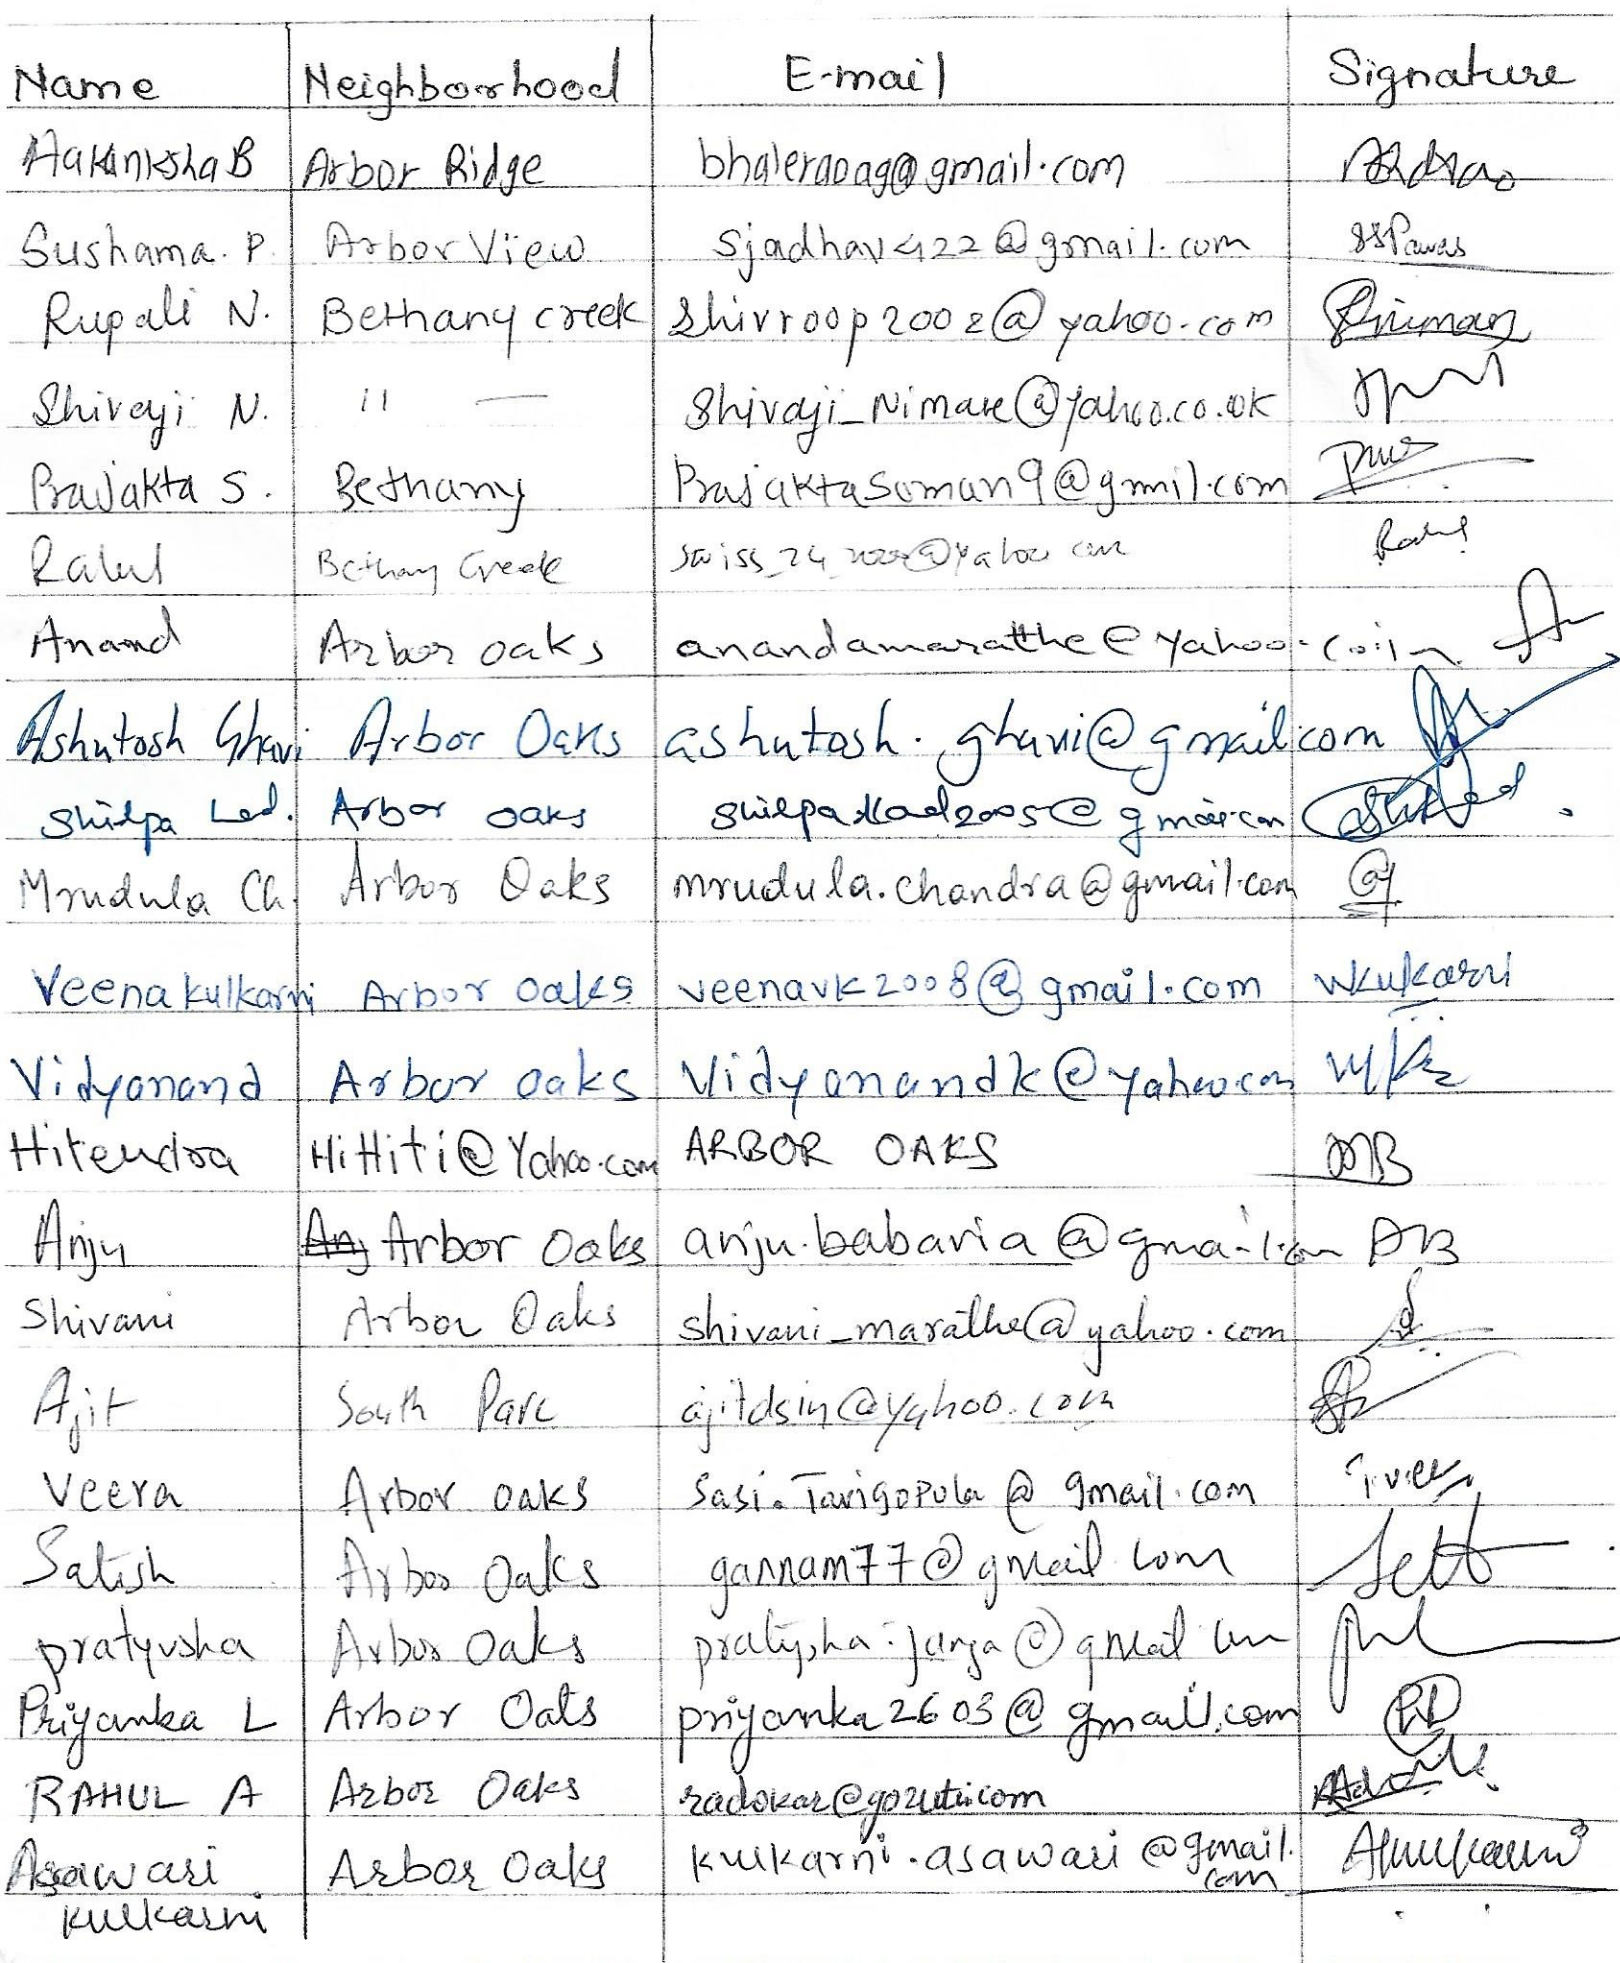 Name Neighborhood E-mail Signature
Aakanksha B Arbor Ridge bhaleraoag@gmail.com
Sushama. P. Arbor View sjadhav422@gmail.com SSPawar
Rupali N. Bethany creek Shivroop2002@yahoo.com
Shivaji N. " — Shivaji_Nimase@yahoo.co.uk
Prajakta S. Bethany PrajaktaSoman9@gmail.com
Rahul Bethany Creek Rahul
Anand Arbor oaks anandamarathe@yahoo.co.in
Ashutosh Ghavi Arbor Oaks ashutosh.ghavi@gmail.com
Shilpa Lad. Arbor oaks
Mrudula Ch. Arbor Oaks mrudula.chandra@gmail.com
Veena kulkarni Arbor oaks veenavk2008@gmail.com VVKulkarni
Vidyanand Arbor oaks Vidyanandk@yahoo.com
Hitendra HiHiti@Yahoo.com ARBOR OAKS
Anju Arbor Oaks anju.babaria@gmail.com AB
Shivani Arbor Oaks shivani_marathe@yahoo.com
Ajit South Parc ajitdsin@yahoo.com
Veera Arbor oaks Sasi.Tavigopula@gmail.com
Satish Arbor Oaks gannam77@gmail.com
pratyusha Arbor Oaks
Priyanka L Arbor Oaks priyanka2603@gmail.com
RAHUL A Arbor Oaks
Asawari Arbor Oaks kulkarni.asawari@gmail.
com
kulkarni